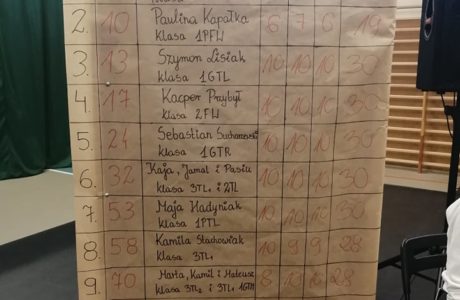 2. 10 Paulina Kapałka 6 7 6 19
klasa 1PFW
3. 13 Szymon Lisiak 10 10 10 30
klasa 1GTL
4. 17 Kacper Przybył 10 10 10 30
klasa 2FW
5. 24 Sebastian 10 10 10 30
klasa 1GTR
6. 32 Kaja, Jamal i Pasiu 10 10 10 30
klasa 3TL1 i 2TL
7. 53 Maja Hadyniak 10 10 10 30
klasa 1PTL
8. 58 Kamila Stachowiak 10 9 9 28
klasa 3TL1
9. 70 Marta, Kamil i Mateusz 8 10 10 28
klasa 3TL2 i 3TL1 1GTR